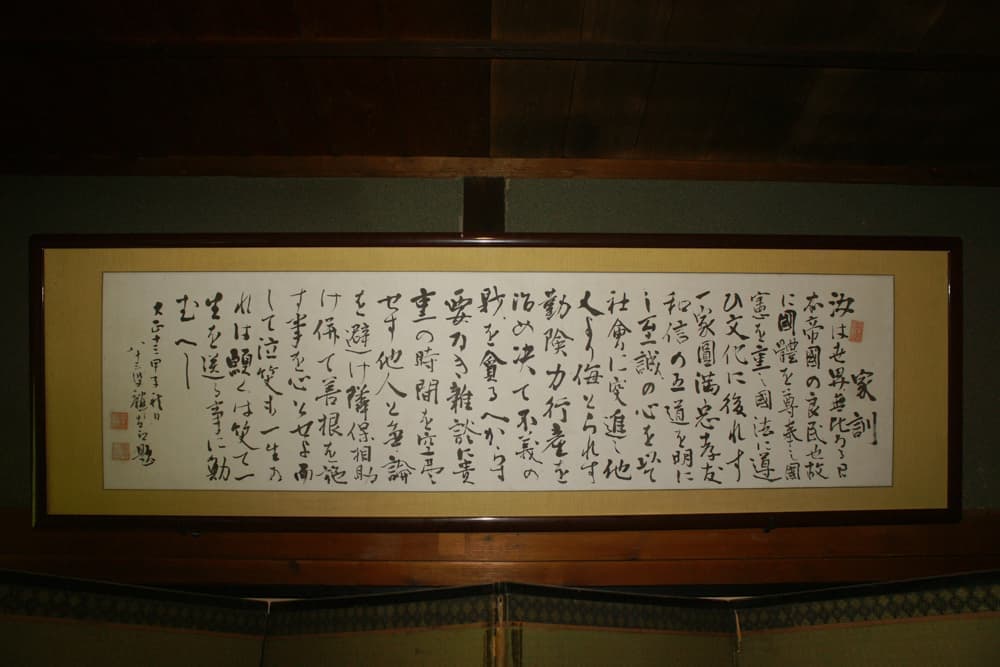 家訓
汝は世界無比乃日
本帝國の良民也故
に國體を尊奉し國
憲を重し國法に遵
ひ文化に後れす
一家圓滿忠孝友
和信の五道を明に
し至誠の心を以て
社會に突進し他
人より侮とられす
勤険力行産を
治め决て不義の
財を貪るへからす
要なき雑談に貴
重の時間を空費
せす他人と無論
を避け隣保相助
け併て善根を施
す事を心かせよ而
して泣笑も一生乃
れは願くは笑て一
生を送る事に勉
むへし
大正十三甲子
八十三